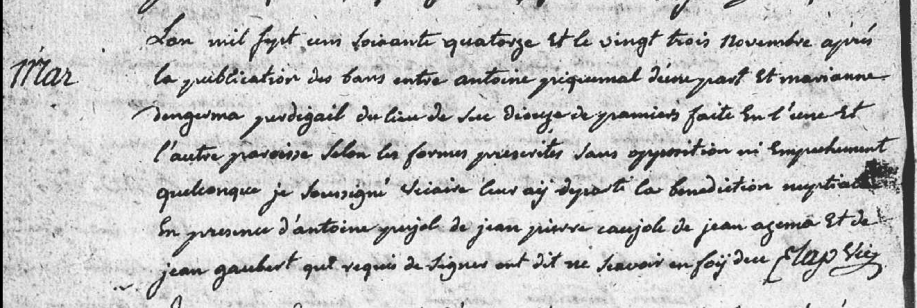 Mar
Lan mil sept cens soixante quatorze Et le vingt trois Novembre après
la publication des bans entre antoine piquemal d'une part Et marianne
perdigail du lieu de Suc dioceze de pamiers faite En l'une Et
l'autre paroisse selon les formes prescrites sans opposition ni Empechement
quelconque je soussigné viciaire leur aij departi la benediction nuptiale
En presence d'antoine pujol de jean pierre caujole de jean azema Et de
jean gaubert qui requis de signer ont dit ne scavoir en foij de ce